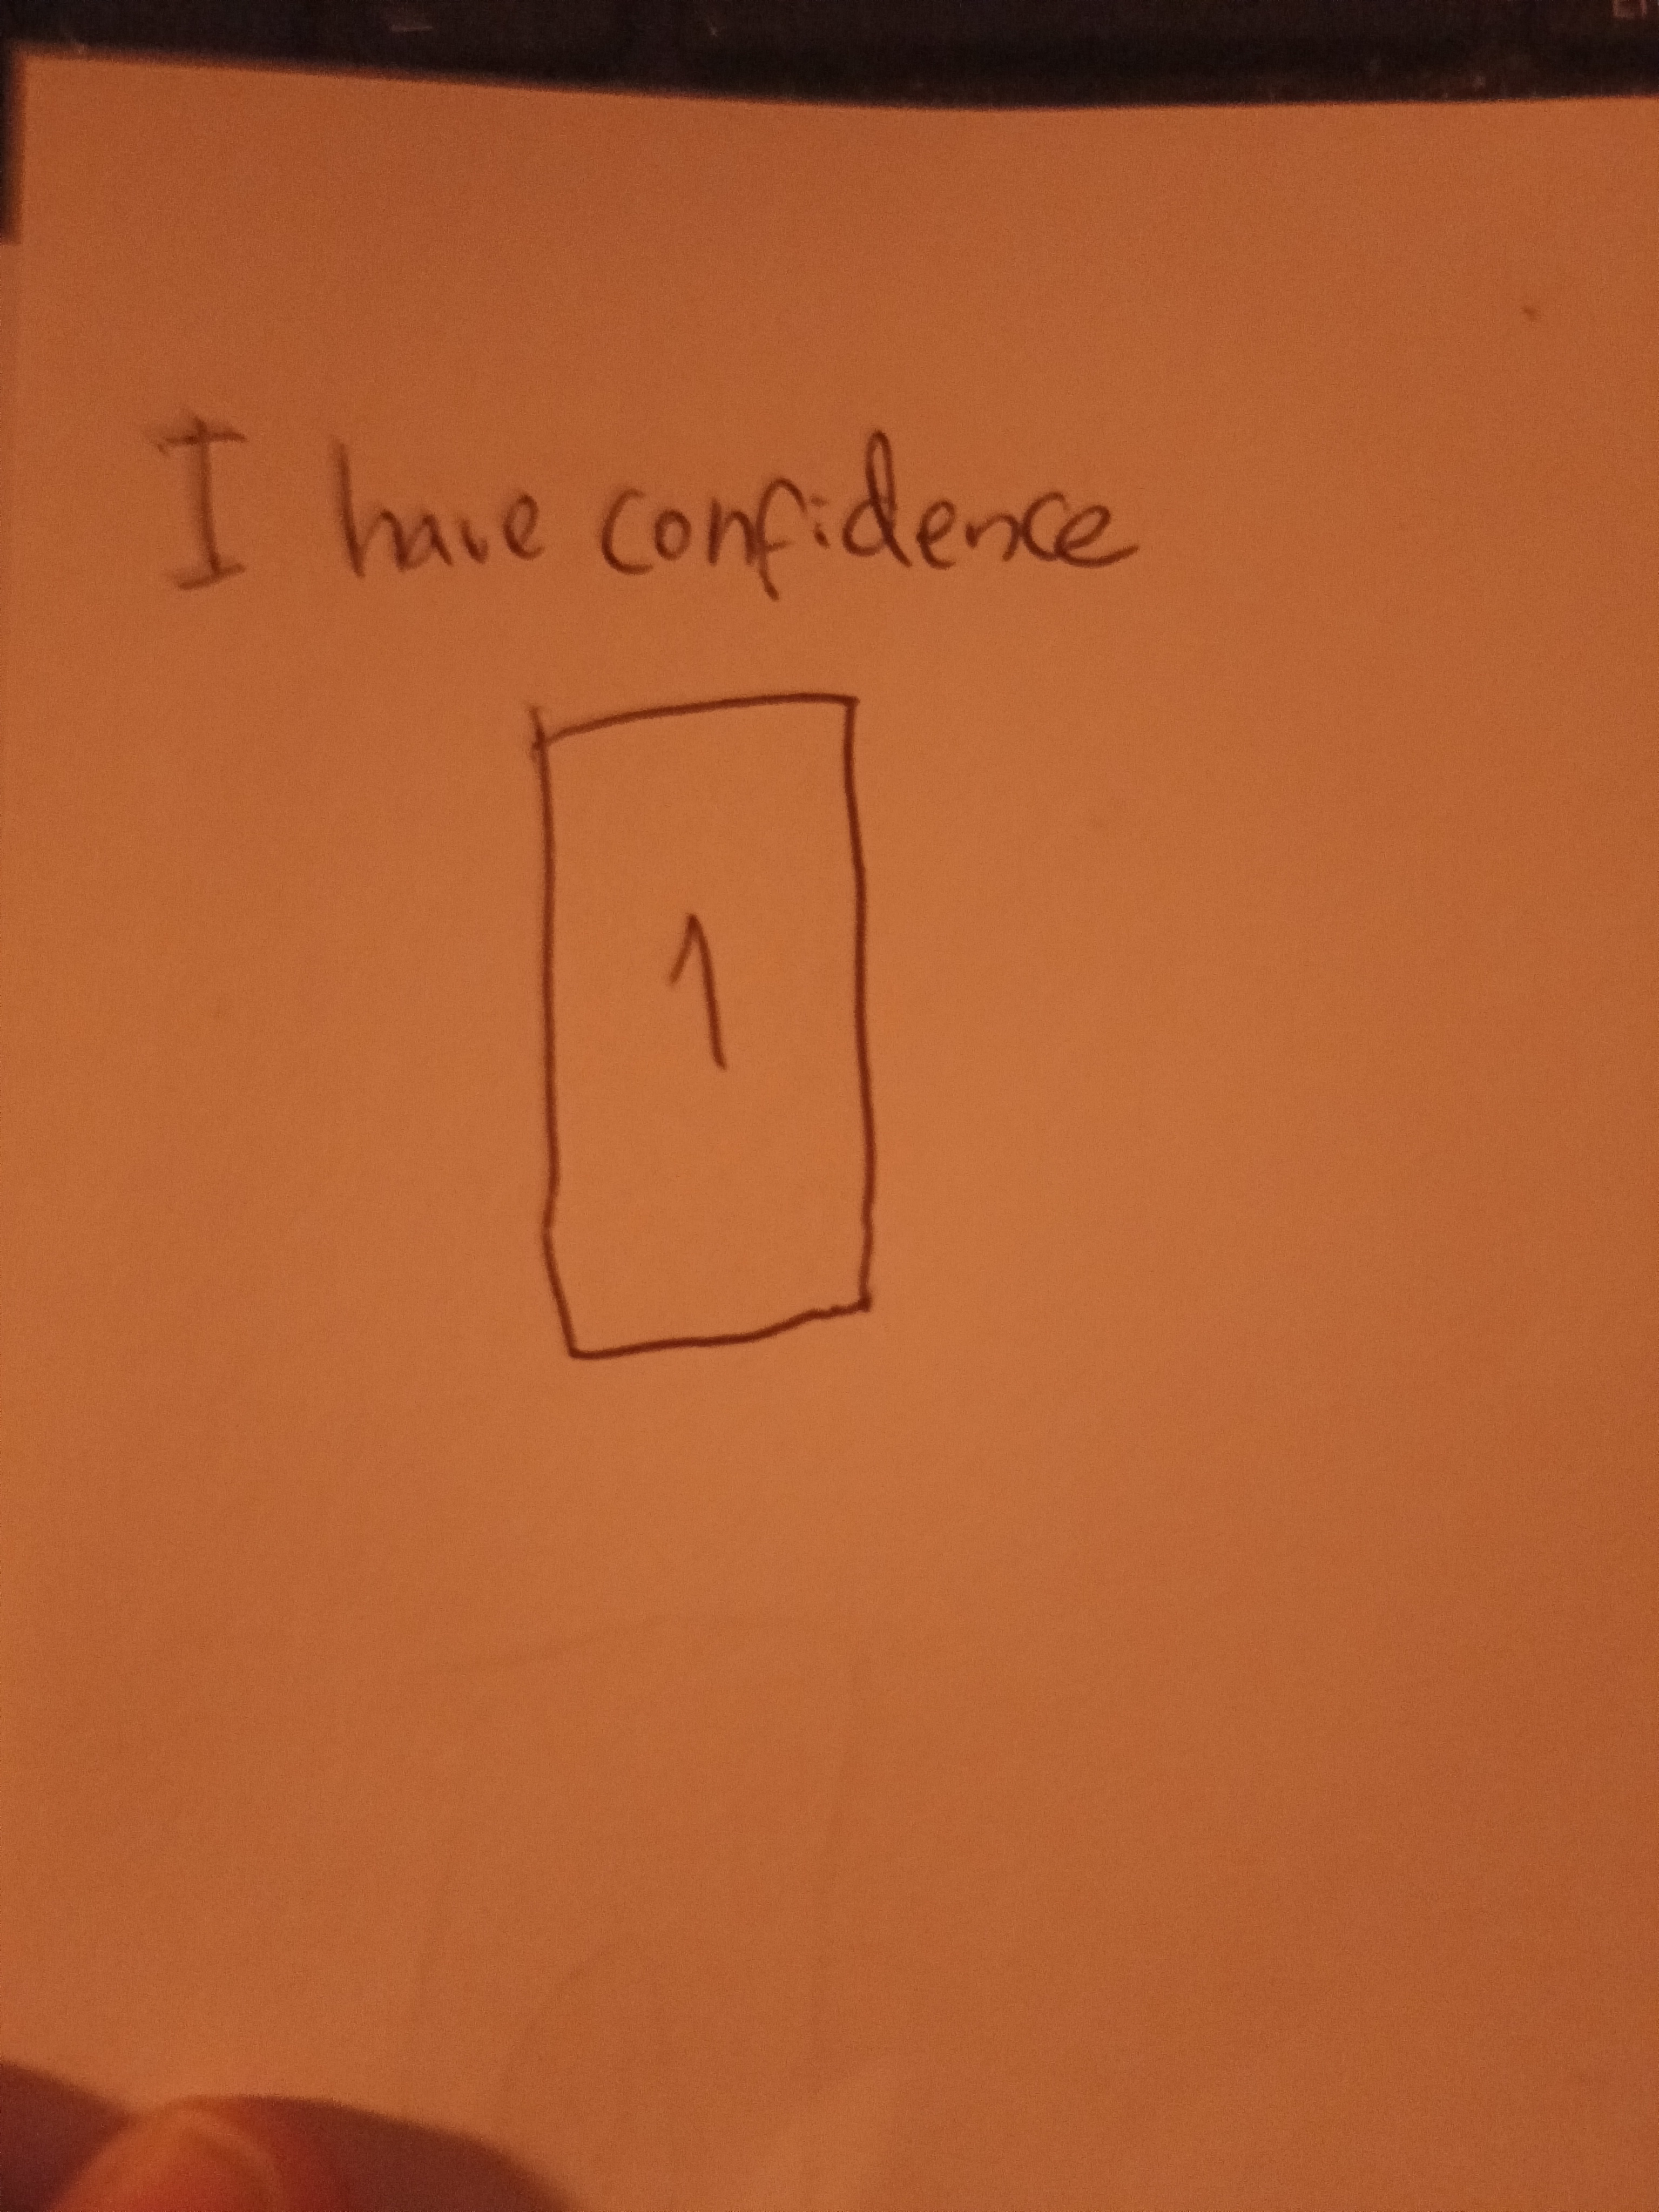 I have confidence
1